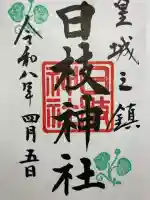 皇城之鎮
日枝神社
令和八年四月五日
日枝神社